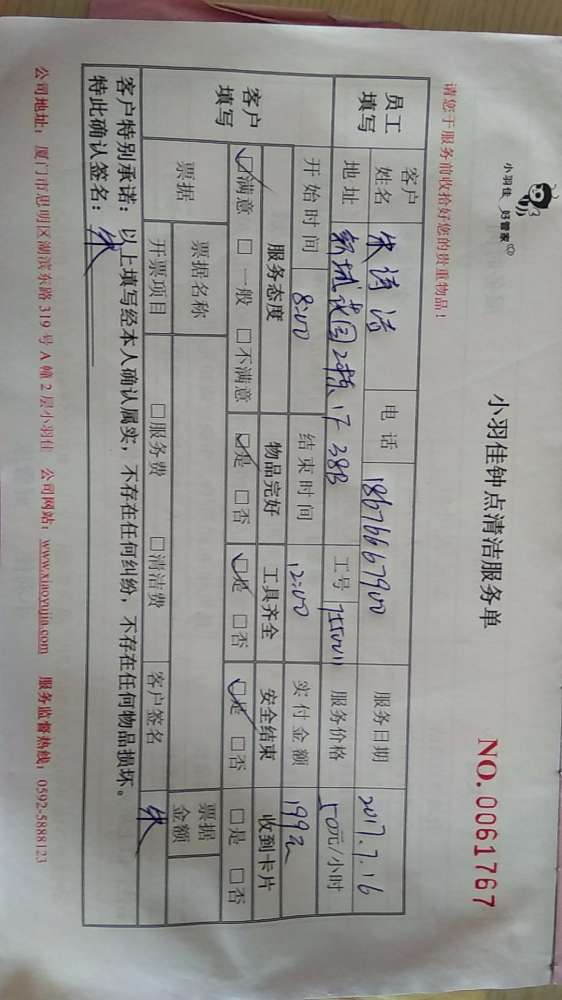 小羽佳 好管家
小羽佳钟点清洁服务单
NO. 0061767
请您于服务前收拾好您的贵重物品！
员工填写 客户姓名 电话 18676667900 服务日期 2017.7.16
地址 2栋 17 38B 工号 服务价格 50元/小时
开始时间 8:00 结束时间 12:00 实付金额 199元
客户填写 服务态度 物品完好 工具齐全 安全结束 收到卡片
☑满意 □一般 □不满意 ☑是 □否 ☑是 □否 ☑是 □否 □是 □否
票据 票据名称 票据金额
开票项目 □服务费 □清洁费 客户签名 朱
客户特别承诺：以上填写经本人确认属实，不存在任何纠纷，不存在任何物品损坏。
特此确认签名：朱
公司地址：厦门市思明区湖滨东路 319 号 A 幢 2 层小羽佳 公司网站：www.xiaoyujia.com 服务监督热线：0592-5888123